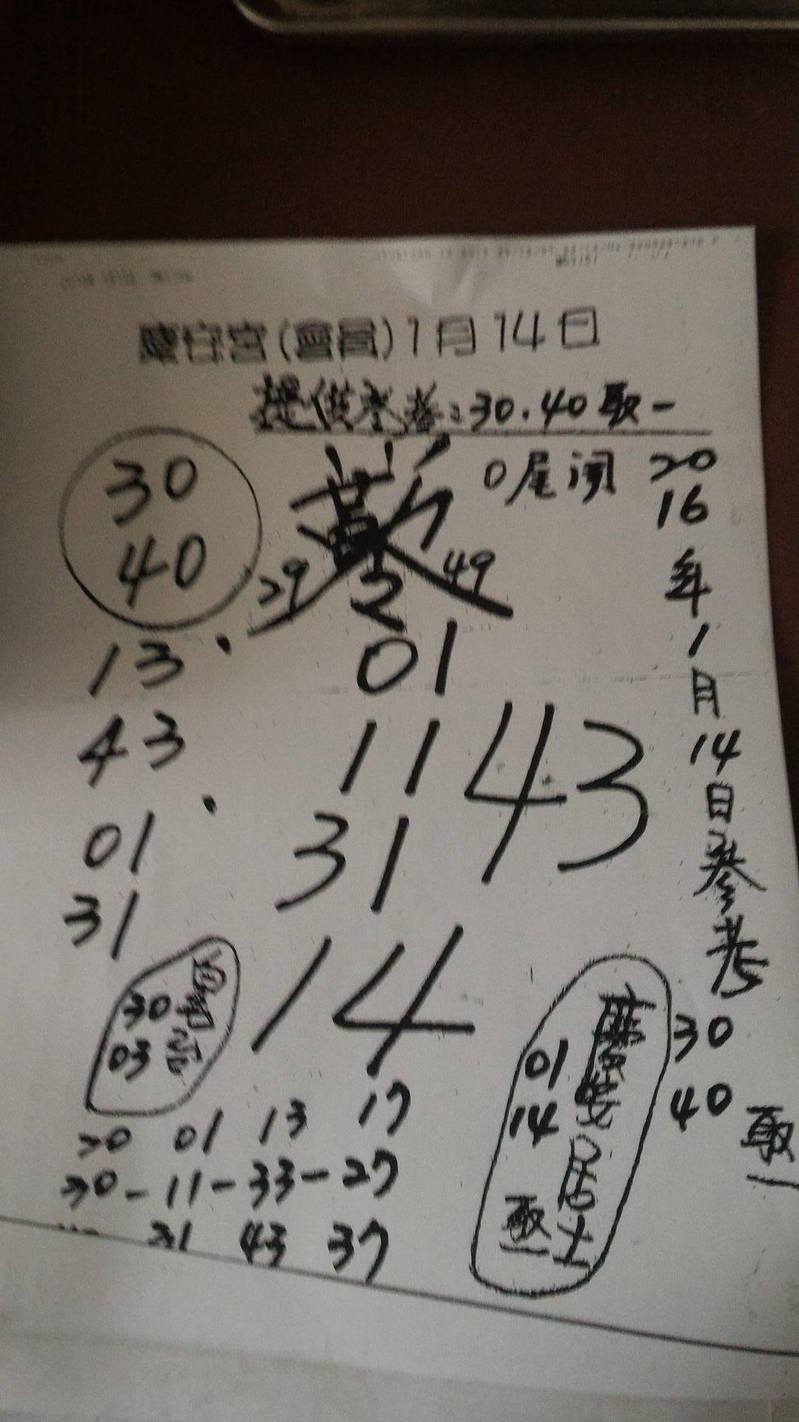 慶安宮(會員)1月14日
提供參考:30.40取一
0尾闖
30
40
29
49
2
01
11
31
43
14
13
43
01
31
30
03
20 01 13 17
30-11-33-27
31 43 37
慶安居士
01
14
取一
2016年1月14日參考
30
40
取一